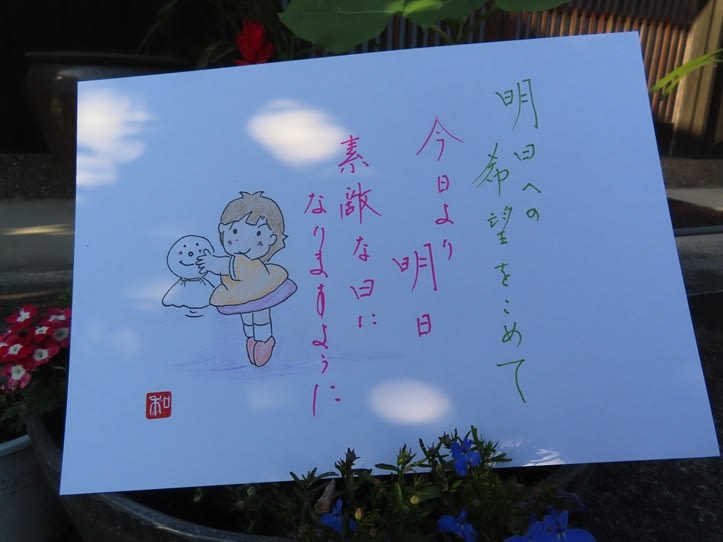 明日への
希望をこめて
今日より
明日
素敵な日に
なりますように
和